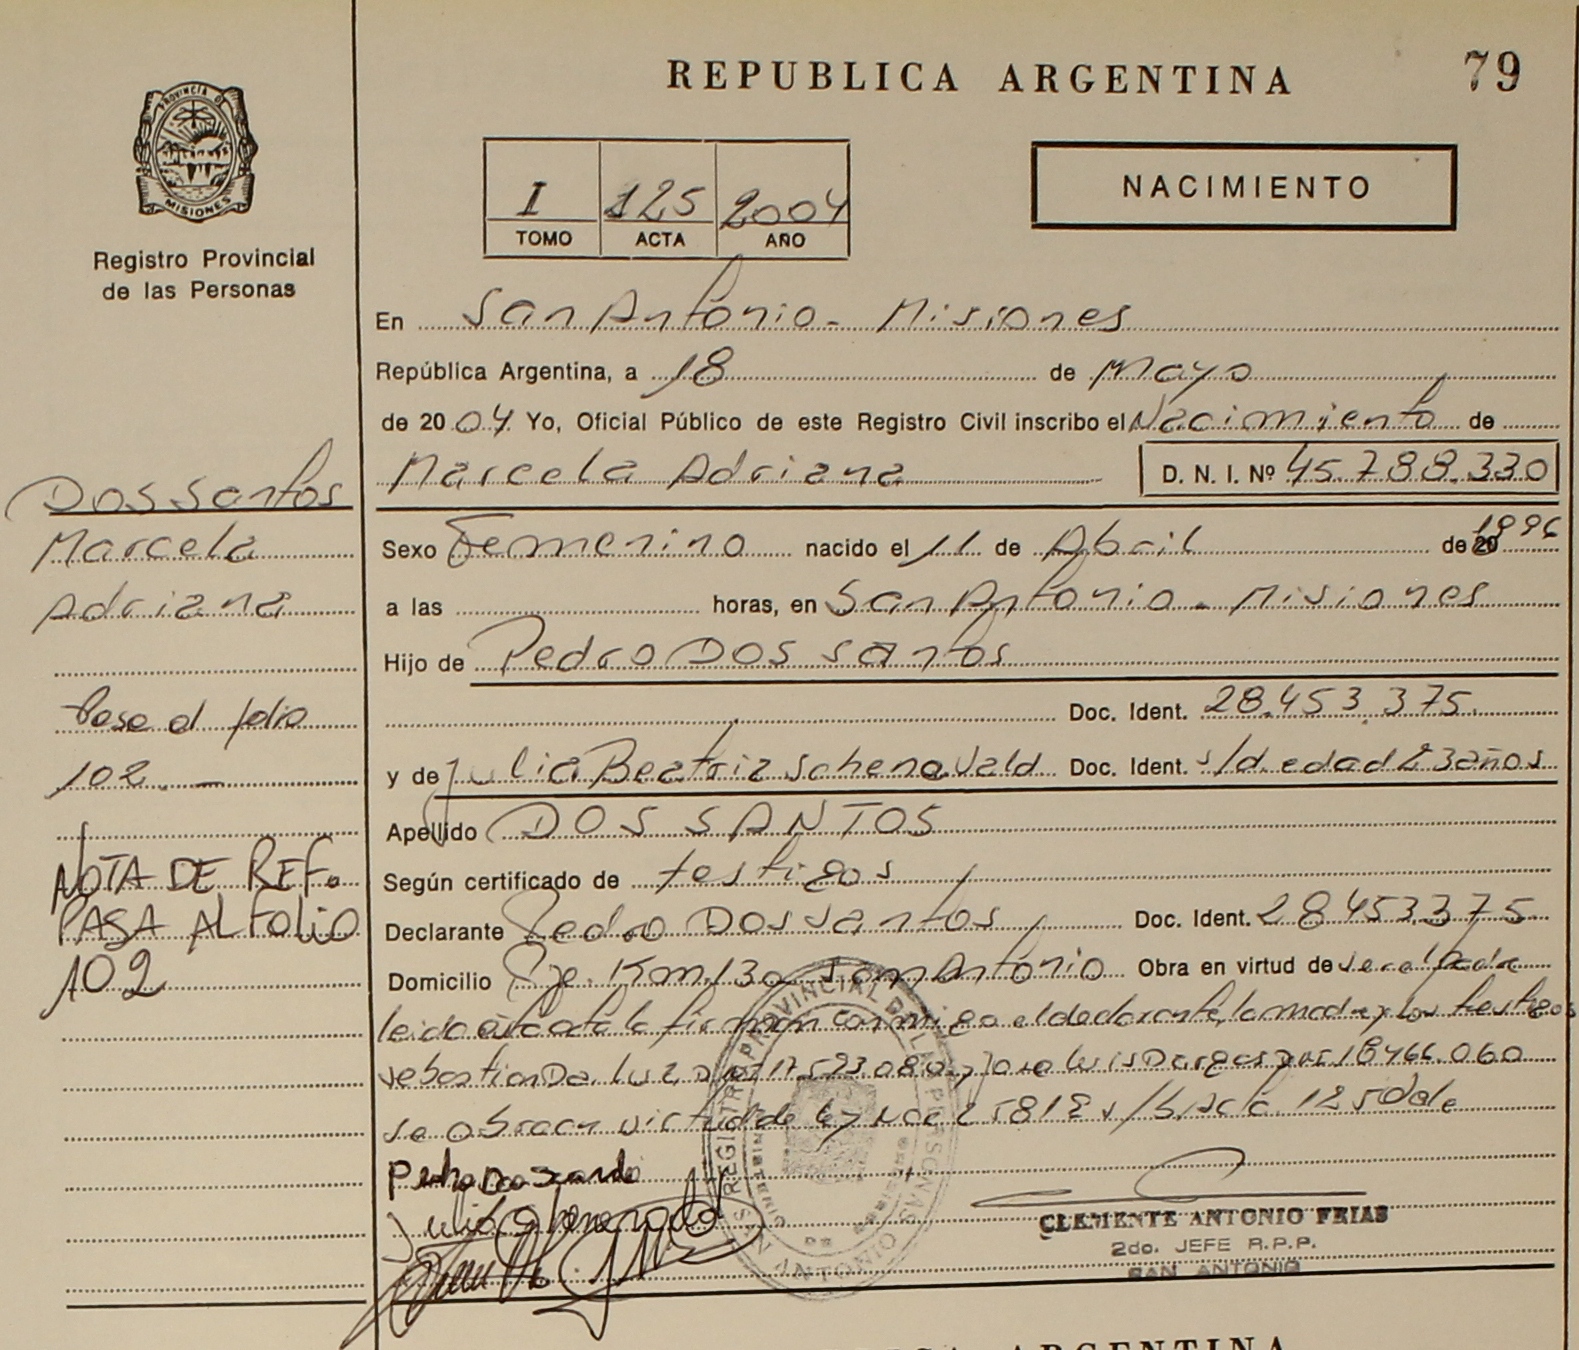 REPUBLICA ARGENTINA
79
PROVINCIA DE
MISIONES
Registro Provincial
de las Personas
I 125 2004
TOMO ACTA AÑO
NACIMIENTO
En San Antonio - Misiones
República Argentina, a 18 de Mayo
de 2004 Yo, Oficial Público de este Registro Civil inscribo el Nacimiento de
Marcela Adriana D. N. I. Nº 45.788.330
Dos Santos
Marcela
Adriana
Pase al folio
102.-
NOTA DE REF.
PASA AL FOLIO
102
Sexo Femenino nacido el 11 de Abril de 20 1996
a las horas, en San Antonio - Misiones
Hijo de Pedro Dos Santos
Doc. Ident. 28.453.375.
y de Julia Beatriz Schenavald Doc. Ident. s/d. edad 23 años
Apellido DOS SANTOS
Según certificado de testigos
Declarante Pedro Dos Santos Doc. Ident. 28453.375
Domicilio Pje. Km. 130 San Antonio Obra en virtud de
leida el acta la firman conmigo el declarante, la madre y los testigos
Sebastian Da Luz 17.523.080 y Jose Luis 18466.060
se obra en virtud de Ley Nac 25819 s/b. acta 125 Vale
Pedro Dos Santo
REGISTRO PROVINCIAL DE LAS PERSONAS
SAN ANTONIO
CLEMENTE ANTONIO FRIAS
2do. JEFE R.P.P.
SAN ANTONIO
ARGENTINA